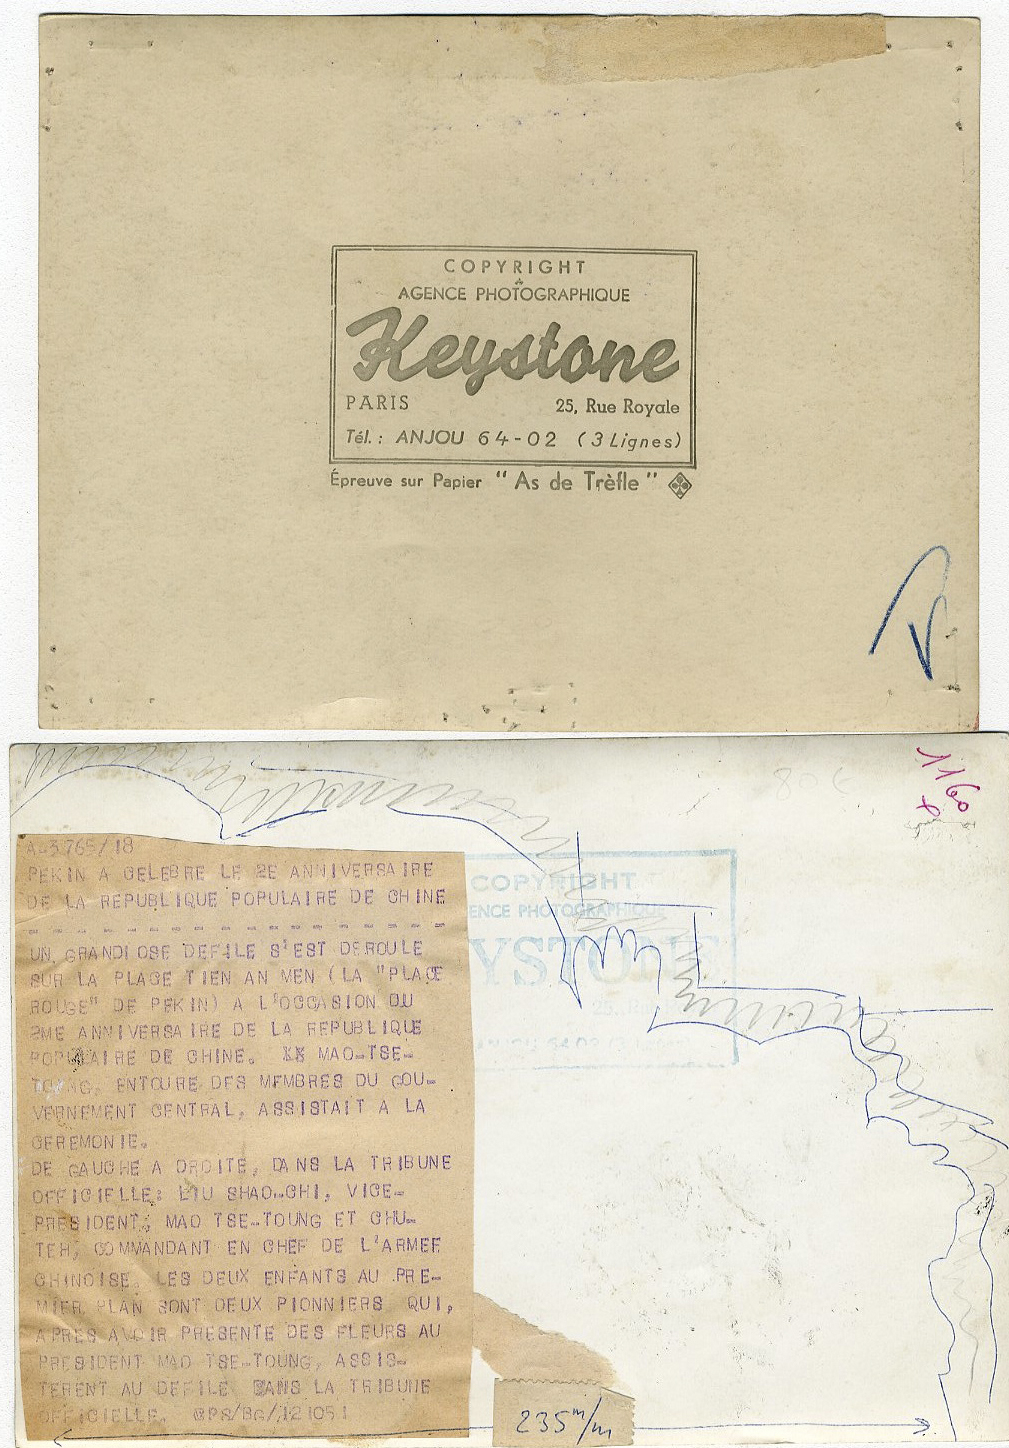 COPYRIGHT
AGENCE PHOTOGRAPHIQUE
Keystone
PARIS 25, Rue Royale
Tél. : ANJOU 64-02 (3 Lignes)
Épreuve sur Papier "As de Trèfle"
1160
80€
A-3765/18
PEKIN A CELEBRE LE 2E ANNIVERSAIRE
DE LA REPUBLIQUE POPULAIRE DE CHINE
- - - - - - - - - - - - - - - - - -
UN GRANDIOSE DEFILE S'EST DEROULE
SUR LA PLACE TIEN AN MEN (LA "PLACE
ROUGE" DE PEKIN) A L'OCCASION DU
2ME ANNIVERSAIRE DE LA REPUBLIQUE
POPULAIRE DE CHINE. XX MAO-TSE-
TOUNG, ENTOURE DES MEMBRES DU GOU-
VERNEMENT CENTRAL, ASSISTAIT A LA
CEREMONIE.
DE GAUCHE A DROITE, DANS LA TRIBUNE
OFFICIELLE: LIU SHAO-CHI, VICE-
PRESIDENT, MAO TSE-TOUNG ET CHU-
TEH, COMMANDANT EN CHEF DE L'ARMEE
CHINOISE. LES DEUX ENFANTS AU PRE-
MIER PLAN SONT DEUX PIONNIERS QUI,
APRES AVOIR PRESENTE DES FLEURS AU
PRESIDENT MAO TSE-TOUNG, ASSIS-
TERENT AU DEFILE DANS LA TRIBUNE
OFFICIELLE. @PS/BG/121051
COPYRIGHT
ENCE PHOTOGRAPHIQUE
YSTONE
25, Ru
235 m/m